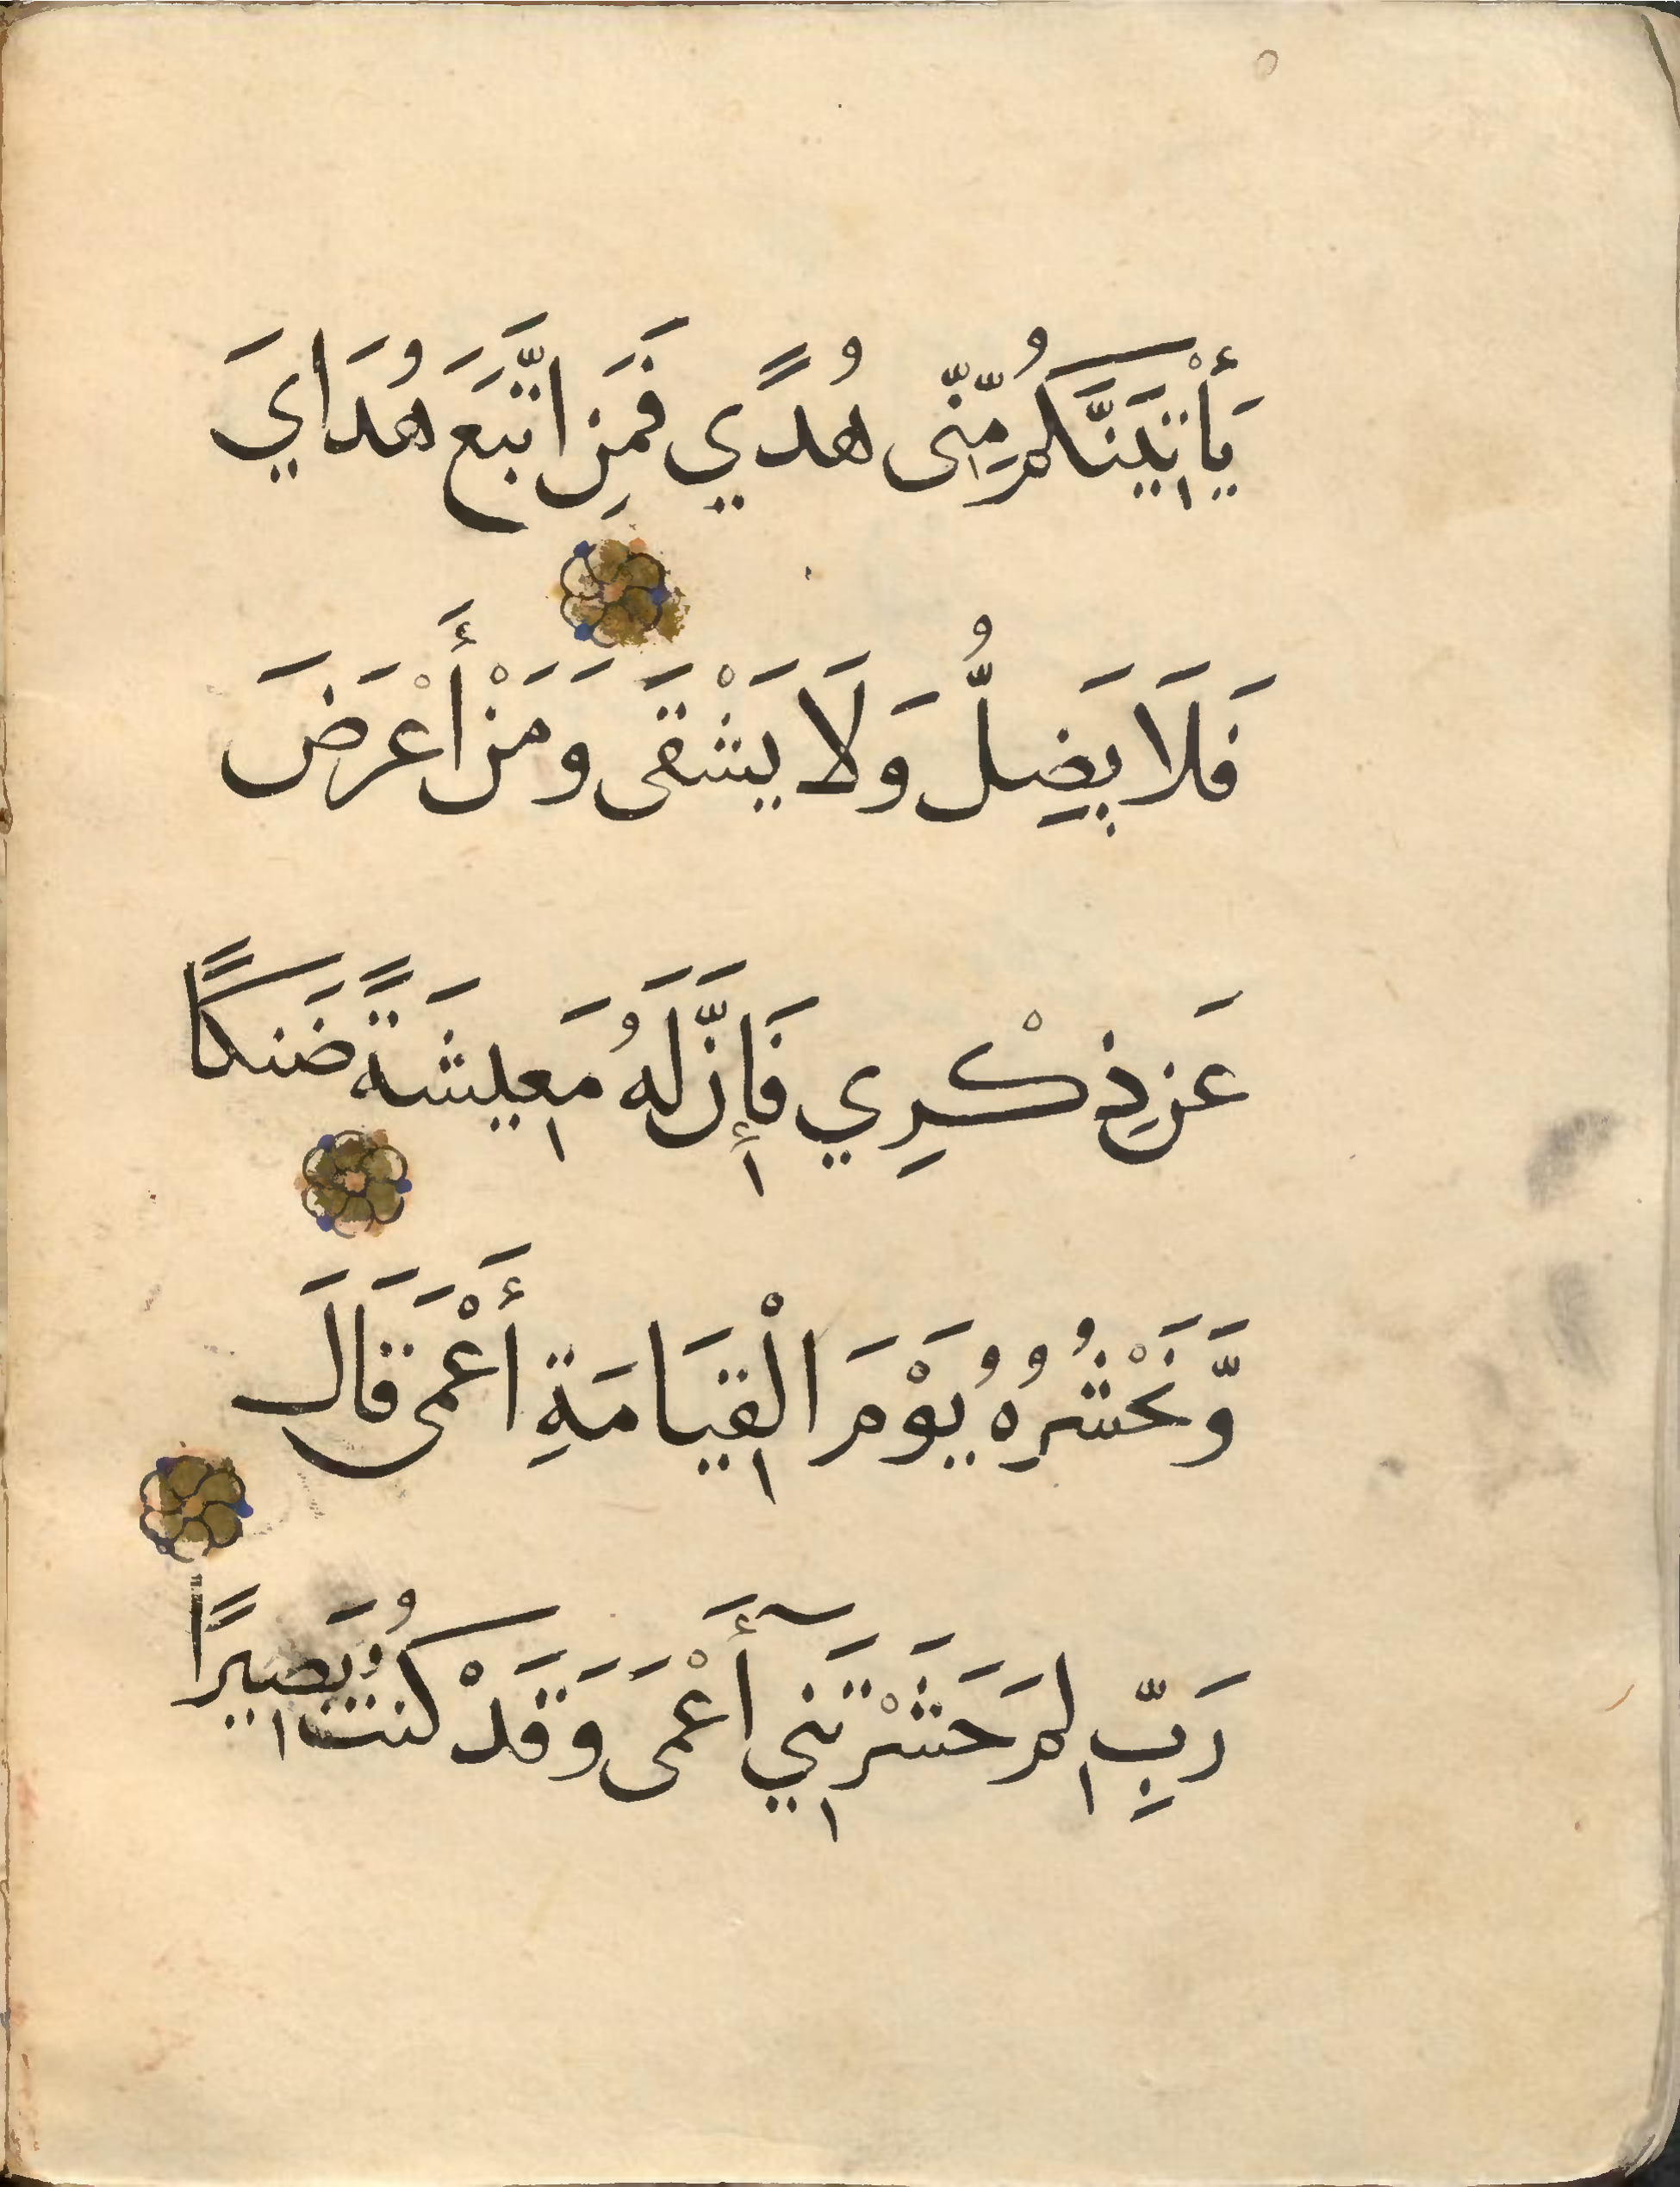 يَأْتِيَنَّكُمْ مِّنِّى هُدًي فَمَنِ اتَّبَعَ هُدَايَ
فَلَا يَضِلُّ وَلَا يَشْقَى وَمَنْ أَعْرَضَ
عَن ذِكْرِي فَإِنَّ لَهُ مَعِيشَةً ضَنكًا
وَّنَحْشُرُهُ يَوْمَ الْقِيَامَةِ أَعْمَى قَالَ
رَبِّ لِمَ حَشَرْتَنِي أَعْمَى وَقَدْ كُنتُ بَصِيرًا